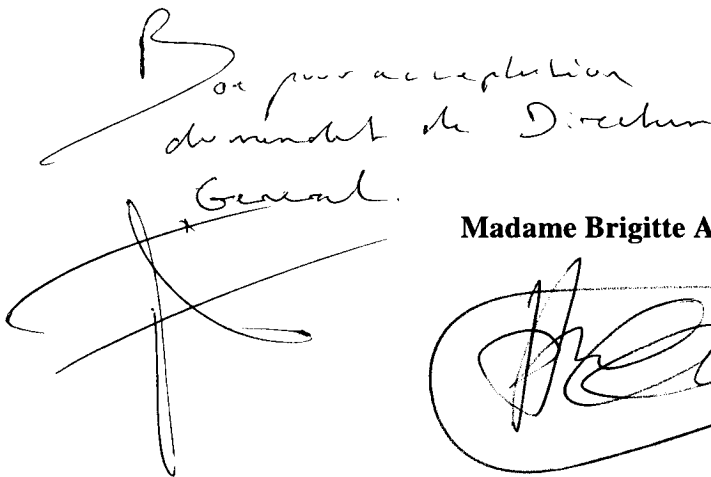 Bon pour acceptation
du mandat de Directeur
General.
Madame Brigitte A